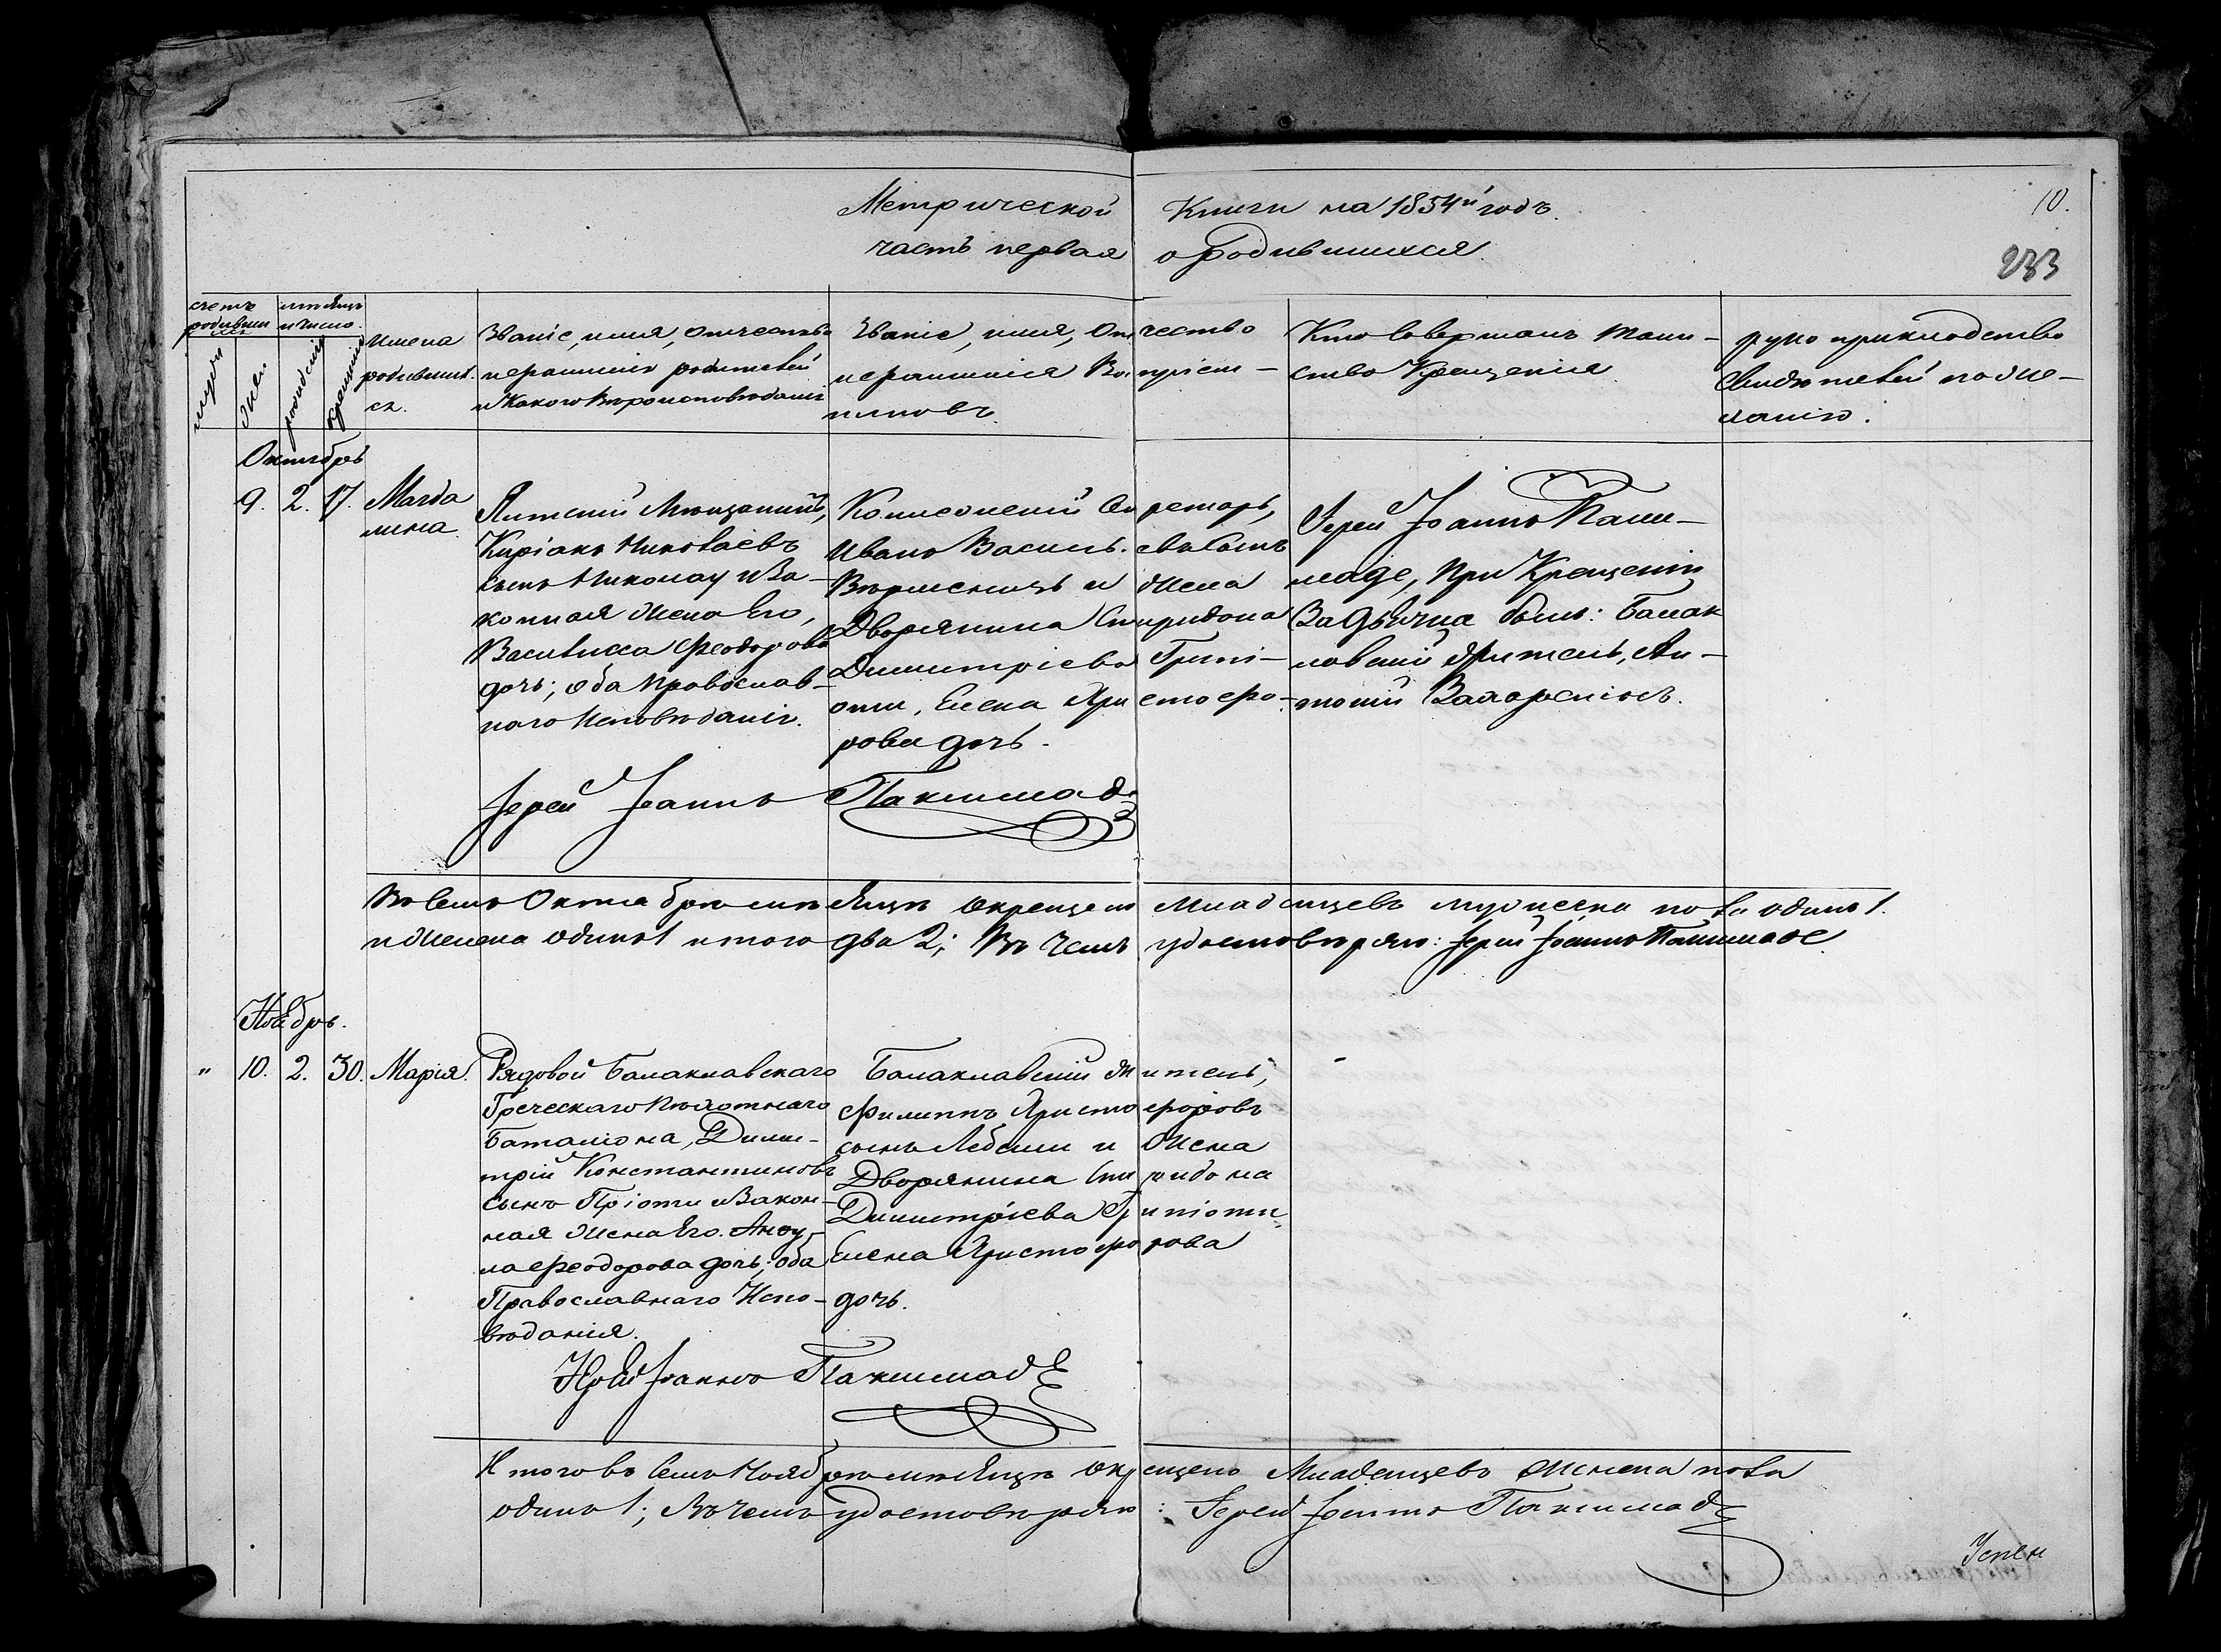 Метрической Книги на 1854й годъ.
10.
часть первая о родившихся.
233
счетъ родивших
мѣсяцъ и число.
муж
жен
рожденія
крещенія
имена родивших ся.
Званіе, имя, отчество
и фамилія родителей
и Какого вѣроисповѣданія
Званіе, имя, отчество
и фамилія Воспріем-
никовъ.
Кто Совершалъ Таин-
ство Крещенія
руко прикладство
Свидѣтелей по же-
ланію.
Октябрь
9. 2. 17.
Магда
лина.
Ялтскій Мѣщанинъ,
Киріакъ Николаевъ
сынъ Николау и За-
конная Жена Его,
Василисса Феодорова
дочь; оба Православ-
наго Исповѣданія.
Коллежскій Секретарь,
Иванъ Василь. евъ Сынъ
и Жена
Дворянина Спиридона
Димитріева Грипі-
оти, Елена Христофо-
рова дочь.
Іерей Іоаннъ Пакси-
маде, При Крещеніи
За Дьячка былъ: Балак
лавскій Житель, Ан-
тоній
Іерей Іоаннъ Паксимаде
Въ Семъ Октябрѣ мѣсяцѣ окрещено Младенцевъ мужеска пола одинъ 1.
и Женска одинъ 1 итого два 2; Въ Чемъ удостовѣряю: Іерей Іоаннъ Паксимаде.
Ноябрь.
" 10. 2. 30. Марія.
Рядовой Балаклавскаго
Греческаго Пѣхотнаго
Баталіона, Дими-
трій Константиновъ
сынъ Пріоти и Закон-
ная Жена Его. Анфу-
ла Феодорова дочь; оба
Православнаго Испо-
вѣданія.
Балаклавскій Житель,
Филиппъ Христофоровъ
сынъ и Жена
Дворянина Спиридона
Димитріева Грипіоти
Елена Христофорова
дочь.
Іерей Іоаннъ Паксимаде
Итого въ Семъ Ноябрѣ мѣсяцѣ окрещено Младенцевъ Женска пола
одинъ 1; Въ Чемъ удостовѣряю: Іерей Іоаннъ Паксимаде